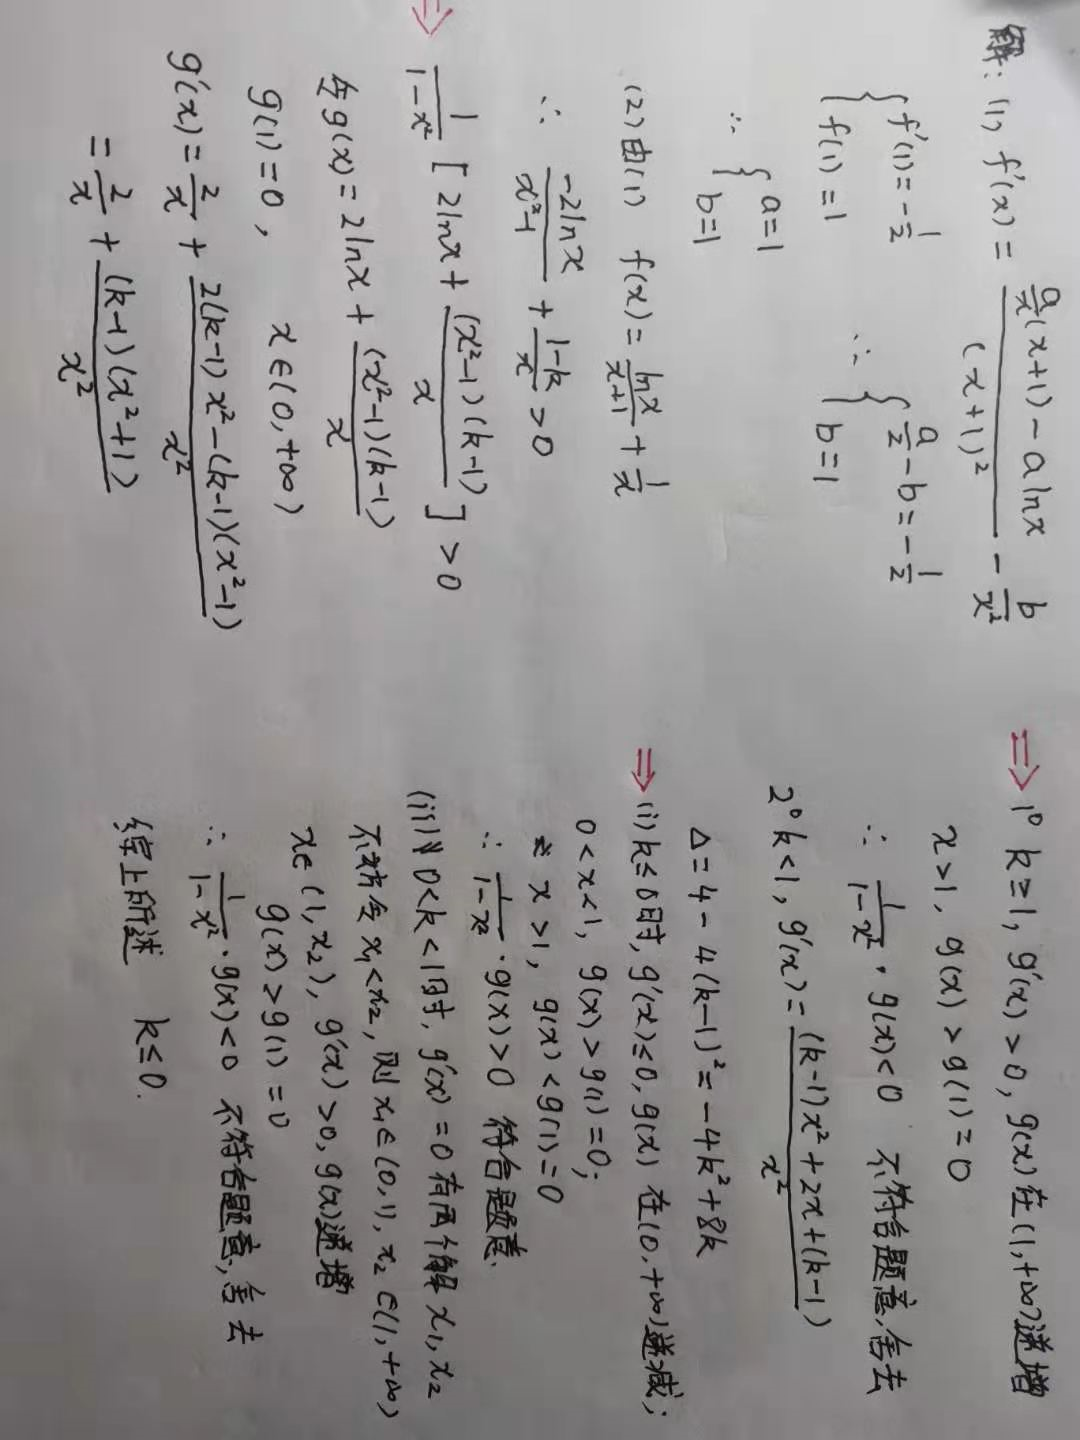 解: (1) f'(x) = \frac{\frac{a}{x}(x+1) - a ln x}{(x+1)^2} - \frac{b}{x^2}
{ f'(1) = -\frac{1}{2} ∴ { \frac{a}{2} - b = -\frac{1}{2}
{ f(1) = 1 { b = 1
∴ { a = 1
{ b = 1
(2) 由(1) f(x) = \frac{ln x}{x+1} + \frac{1}{x}
∴ \frac{-2ln x}{x^2-1} + \frac{1-k}{x} > 0
⇒ \frac{1}{1-x^2} [ 2ln x + \frac{(x^2-1)(k-1)}{x} ] > 0
令 g(x) = 2ln x + \frac{(x^2-1)(k-1)}{x}
g(1) = 0 , x∈(0,+∞)
g'(x) = \frac{2}{x} + \frac{2(k-1)x^2-(k-1)(x^2-1)}{x^2}
= \frac{2}{x} + \frac{(k-1)(x^2+1)}{x^2}
⇒ 1° k≥1, g'(x) > 0, g(x)在(1,+∞)递增
x>1, g(x) > g(1) = 0
∴ \frac{1}{1-x^2} · g(x) < 0 不符合题意,舍去
2° k<1, g'(x) = \frac{(k-1)x^2+2x+(k-1)}{x^2}
Δ = 4 - 4(k-1)^2 = -4k^2+8k
⇒ (i) k≤0时, g'(x)≤0, g(x) 在(0,+∞)递减;
0<x<1, g(x) > g(1) = 0;
x>1, g(x) < g(1) = 0
∴ \frac{1}{1-x^2} · g(x) > 0 符合题意.
(ii) 0<k<1时, g'(x) = 0 有两个解 x_1, x_2
不妨令 x_1<x_2, 则 x_1∈(0,1), x_2∈(1,+∞)
x∈(1,x_2), g'(x) > 0, g(x)递增
g(x) > g(1) = 0
∴ \frac{1}{1-x^2} · g(x) < 0 不符合题意,舍去
综上所述 k≤0.